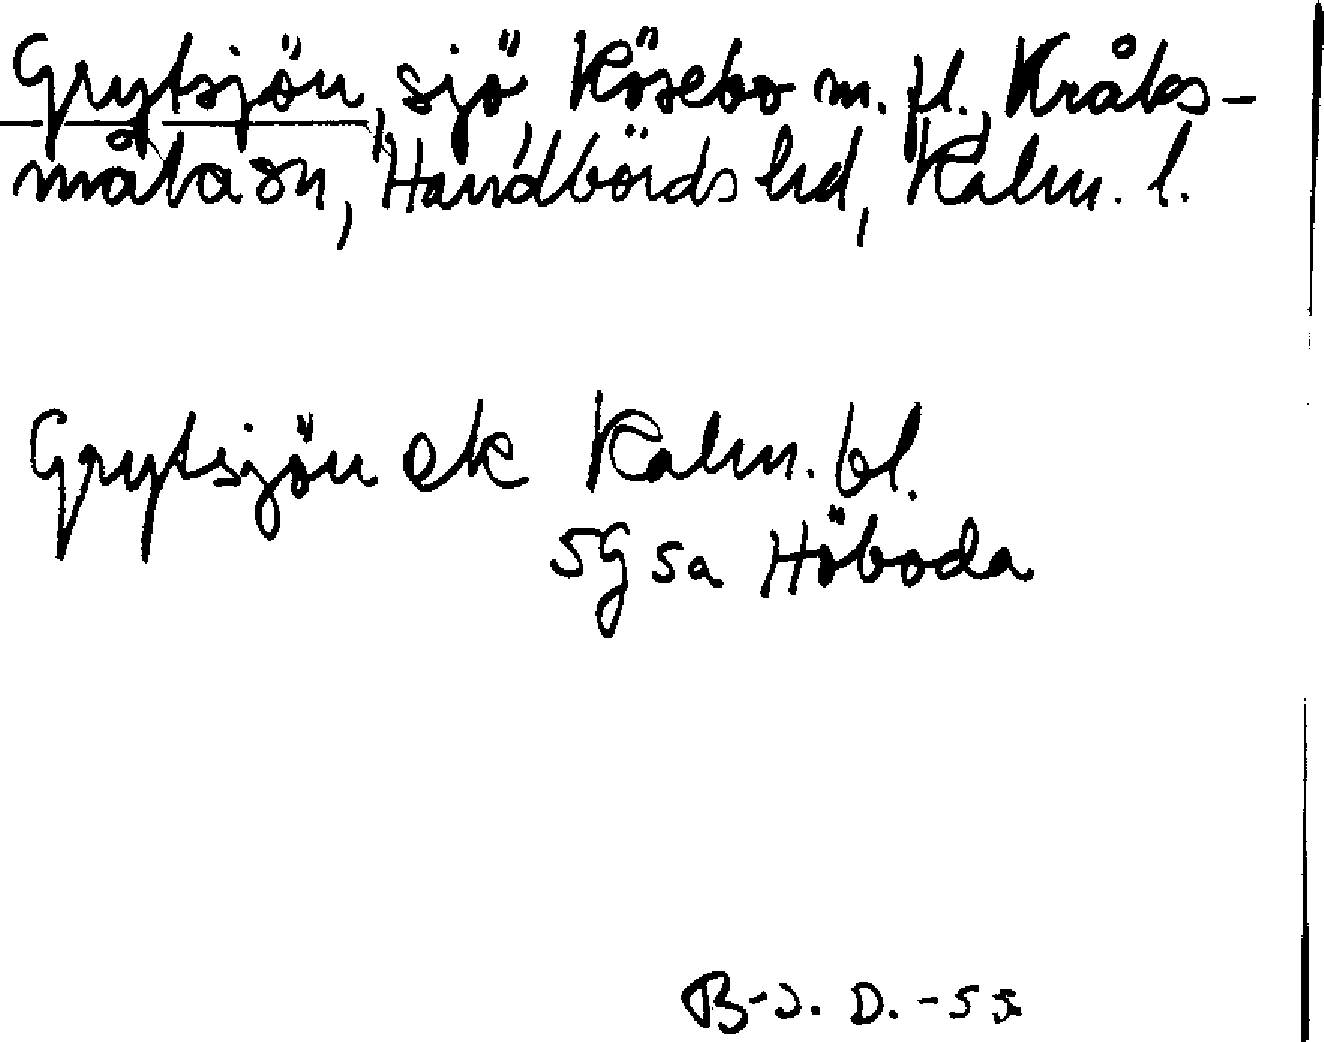 Grytsjön, sjö, Kösebo m. fl., Kråks-
måla sn, Handbörds hd, Kalm. l.
Grytsjön ek Kalm. bl.
5g 5a Höboda
B-J. D. -55